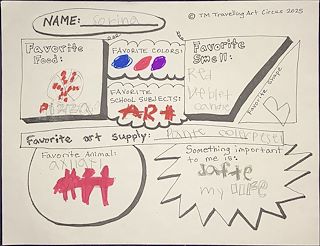 NAME: Sarina
© TM Travelling Art Circus 2025
Favorite Food:
PIZZA
FAVORITE COLORS:
FAVORITE SCHOOL SUBJECTS:
ART
Favorite Smell:
Red
Velvet
candle
Favorite Shape
Favorite art supply:
Favorite Animal:
axolotl
Something important to me is:
safte
my life